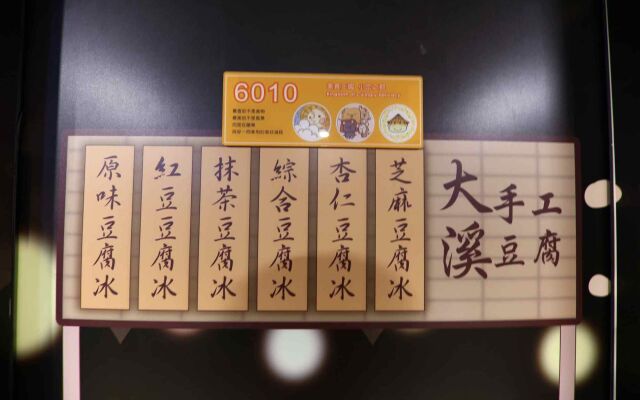 6010
大溪
手工豆腐
芝麻豆腐冰
杏仁豆腐冰
綜合豆腐冰
抹茶豆腐冰
紅豆豆腐冰
原味豆腐冰